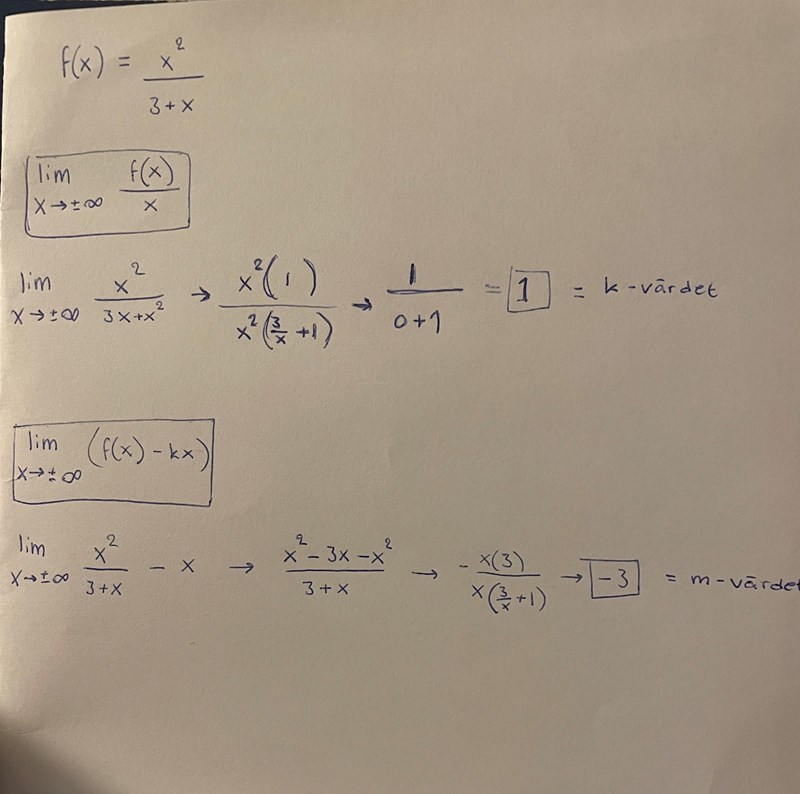 f(x) = x² / (3 + x)
lim x→±∞ f(x) / x
lim x→±∞ x² / (3x+x²) → x²(1) / x²(3/x +1) → 1 / (0+1) = 1 = k-värdet
lim x→±∞ (f(x) - kx)
lim x→±∞ x² / (3+x) - x → (x² - 3x - x²) / (3+x) → - x(3) / x(3/x +1) → -3 = m-värdet